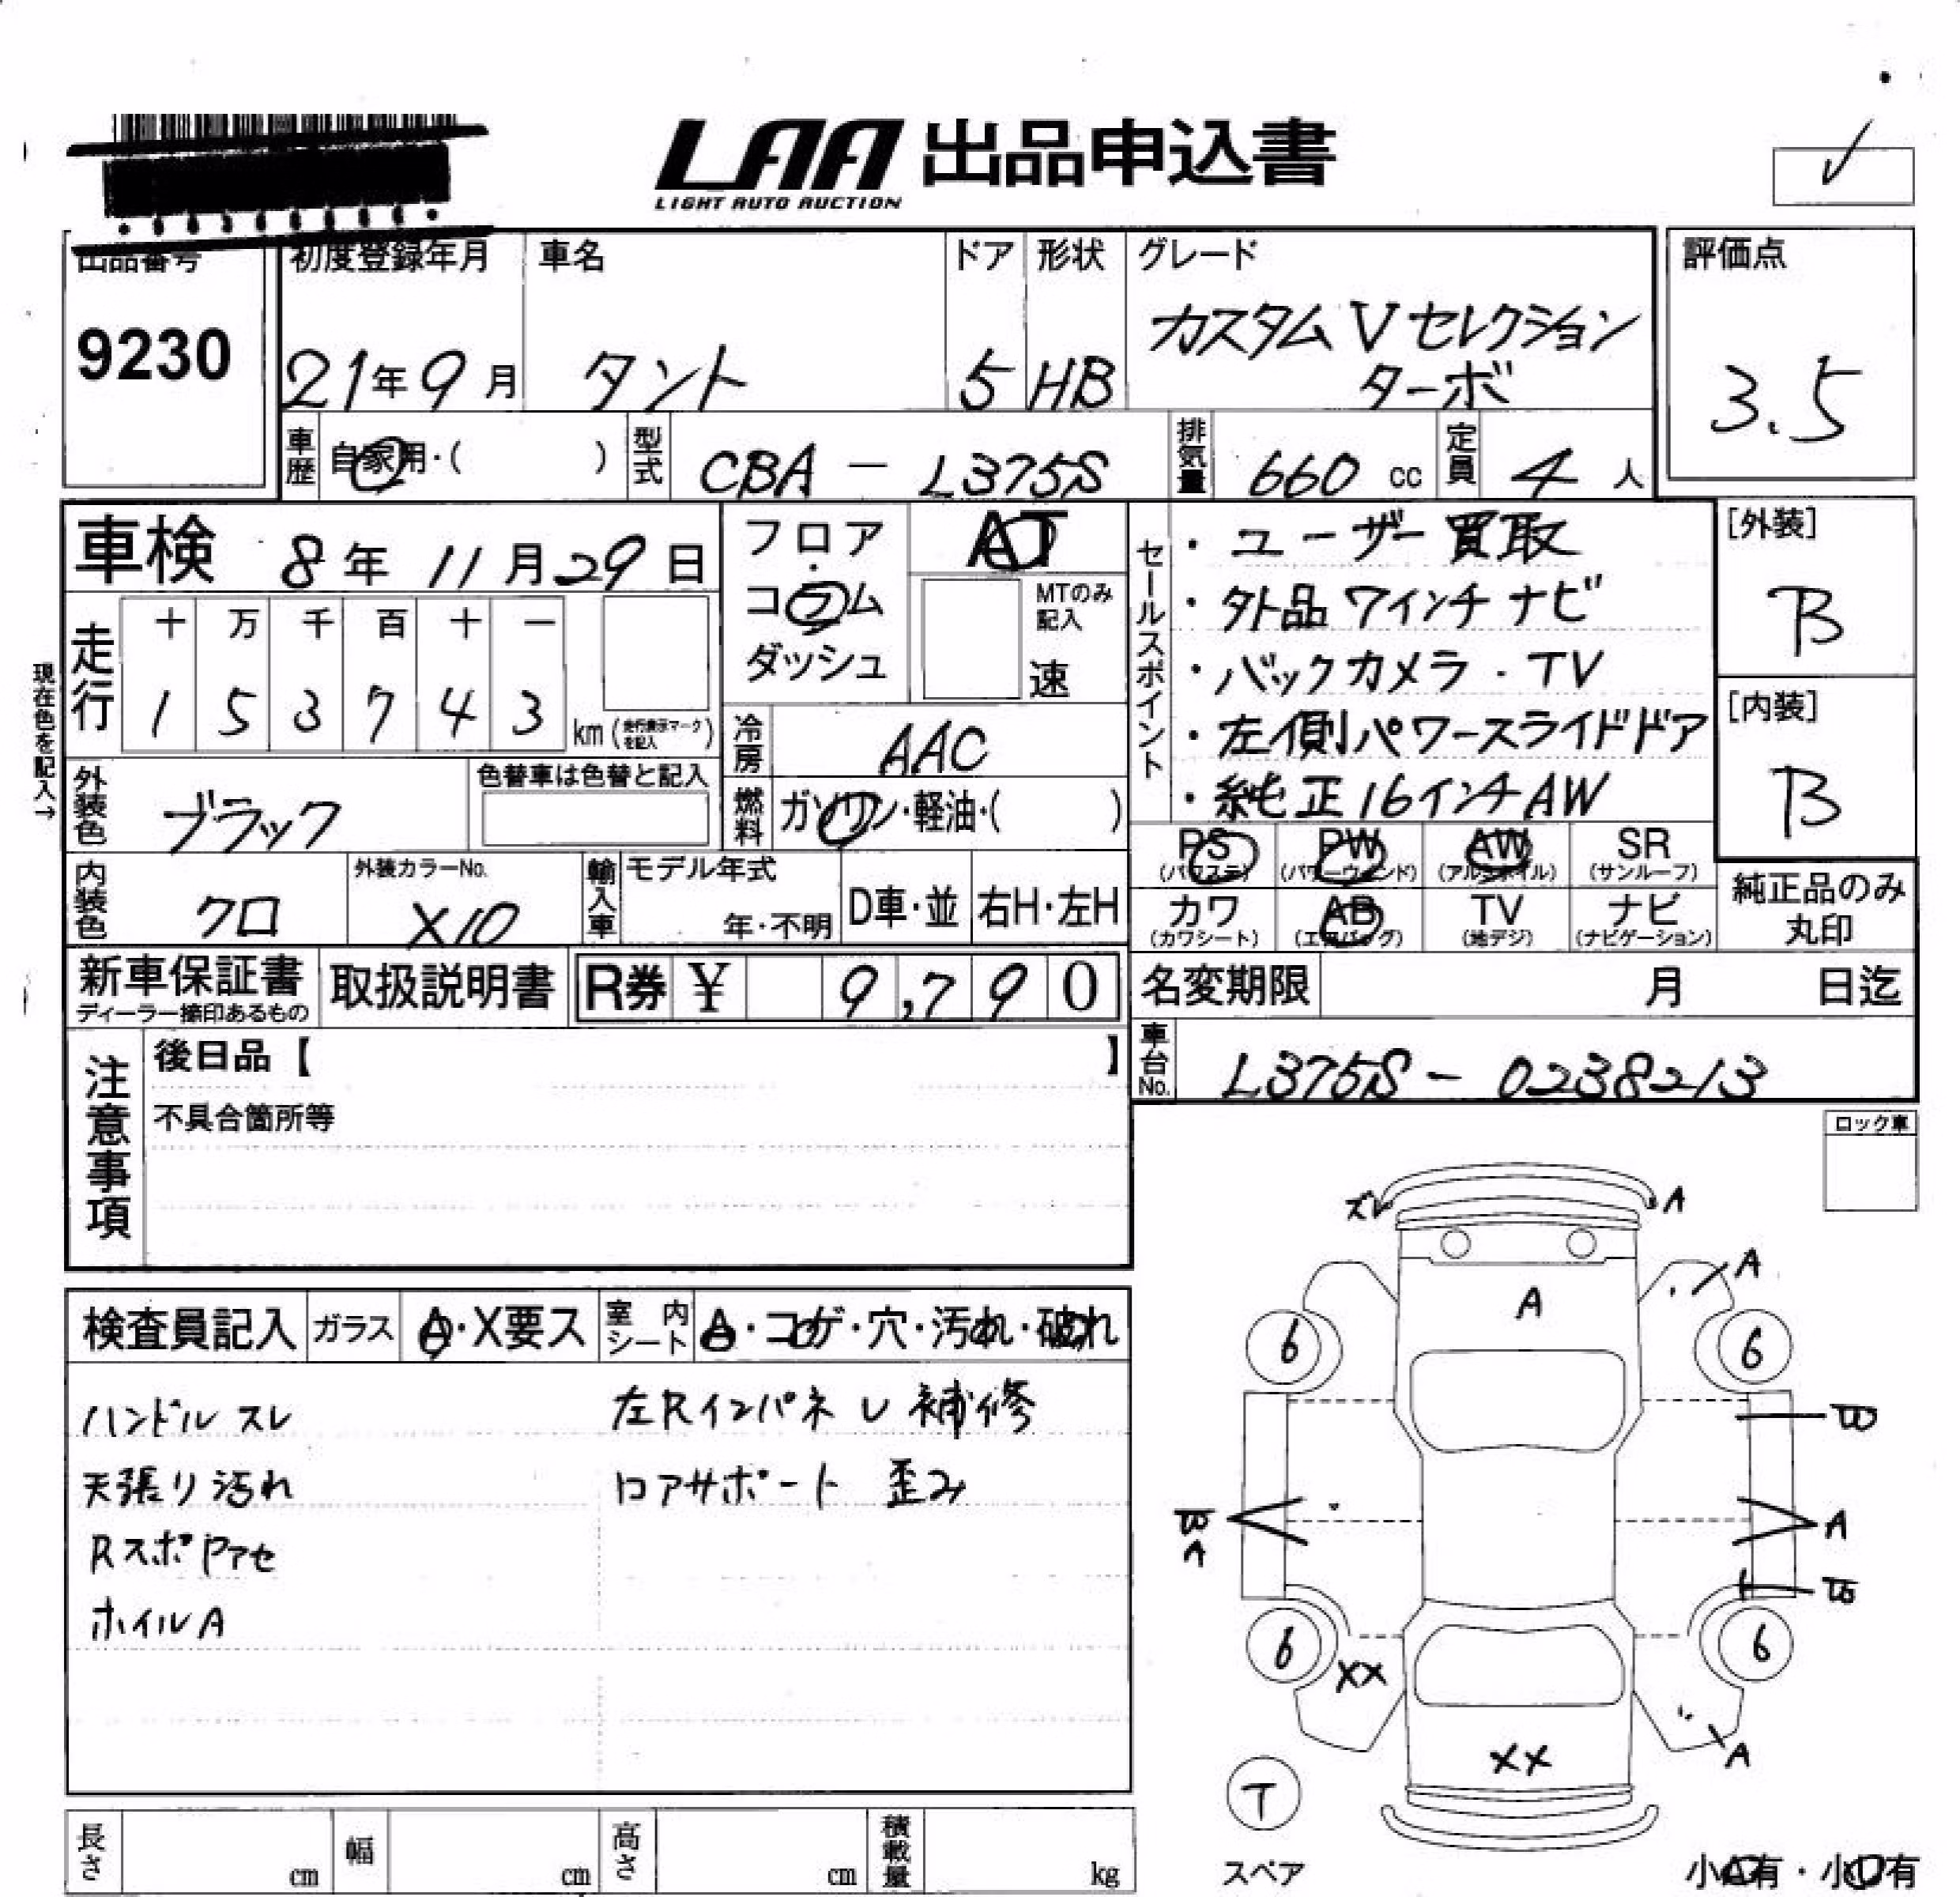 LAA 出品申込書
LIGHT AUTO AUCTION
出品番号
9230
初度登録年月
21年9月
車名
タント
ドア
5
形状
HB
グレード
カスタム Vセレクション
ターボ
評価点
3.5
車歴
自家用・( )
型式
CBA - L375S
排気量
660 cc
定員
4 人
車検 8年11月29日
フロア
コラム
ダッシュ
AT
MTのみ
記入
速
現在色を記入→
走行
十 万 千 百 十 一
1 5 3 7 4 3
km(走行表示マークを記入)
冷房
AAC
燃料
ガソリン・軽油・( )
外装色
ブラック
色替車は色替と記入
内装色
クロ
外装カラーNo.
X10
輸入車
モデル年式
年・不明
D車・並
右H・左H
セールスポイント
・ユーザー買取
・外品7インチナビ
・バックカメラ.TV
・左側パワースライドドア
・純正16インチAW
[外装]
B
[内装]
B
PS (パワステ)
PW (パワーウィンド)
AW (アルミホイル)
SR (サンルーフ)
カワ (カワシート)
AB (エアバッグ)
TV (地デジ)
ナビ (ナビゲーション)
純正品のみ
丸印
新車保証書
ディーラー捺印あるもの
取扱説明書
R券 ¥ 9,790
名変期限 月 日迄
車台No.
L375S - 0238213
注意事項
後日品【 】
不具合箇所等
ロック車
検査員記入
ガラス
A・X要ス
室内シート
A・コゲ・穴・汚れ・破れ
ハンドル スレ
天張り汚れ
ホイルA
左Rインパネ U 補修
ロアサポート 歪み
ズレ
A
A
A
6
6
A
6
6
XX
XX
A
T
スペア
小A有・小U有
長さ cm
幅 cm
高さ cm
積載量 kg